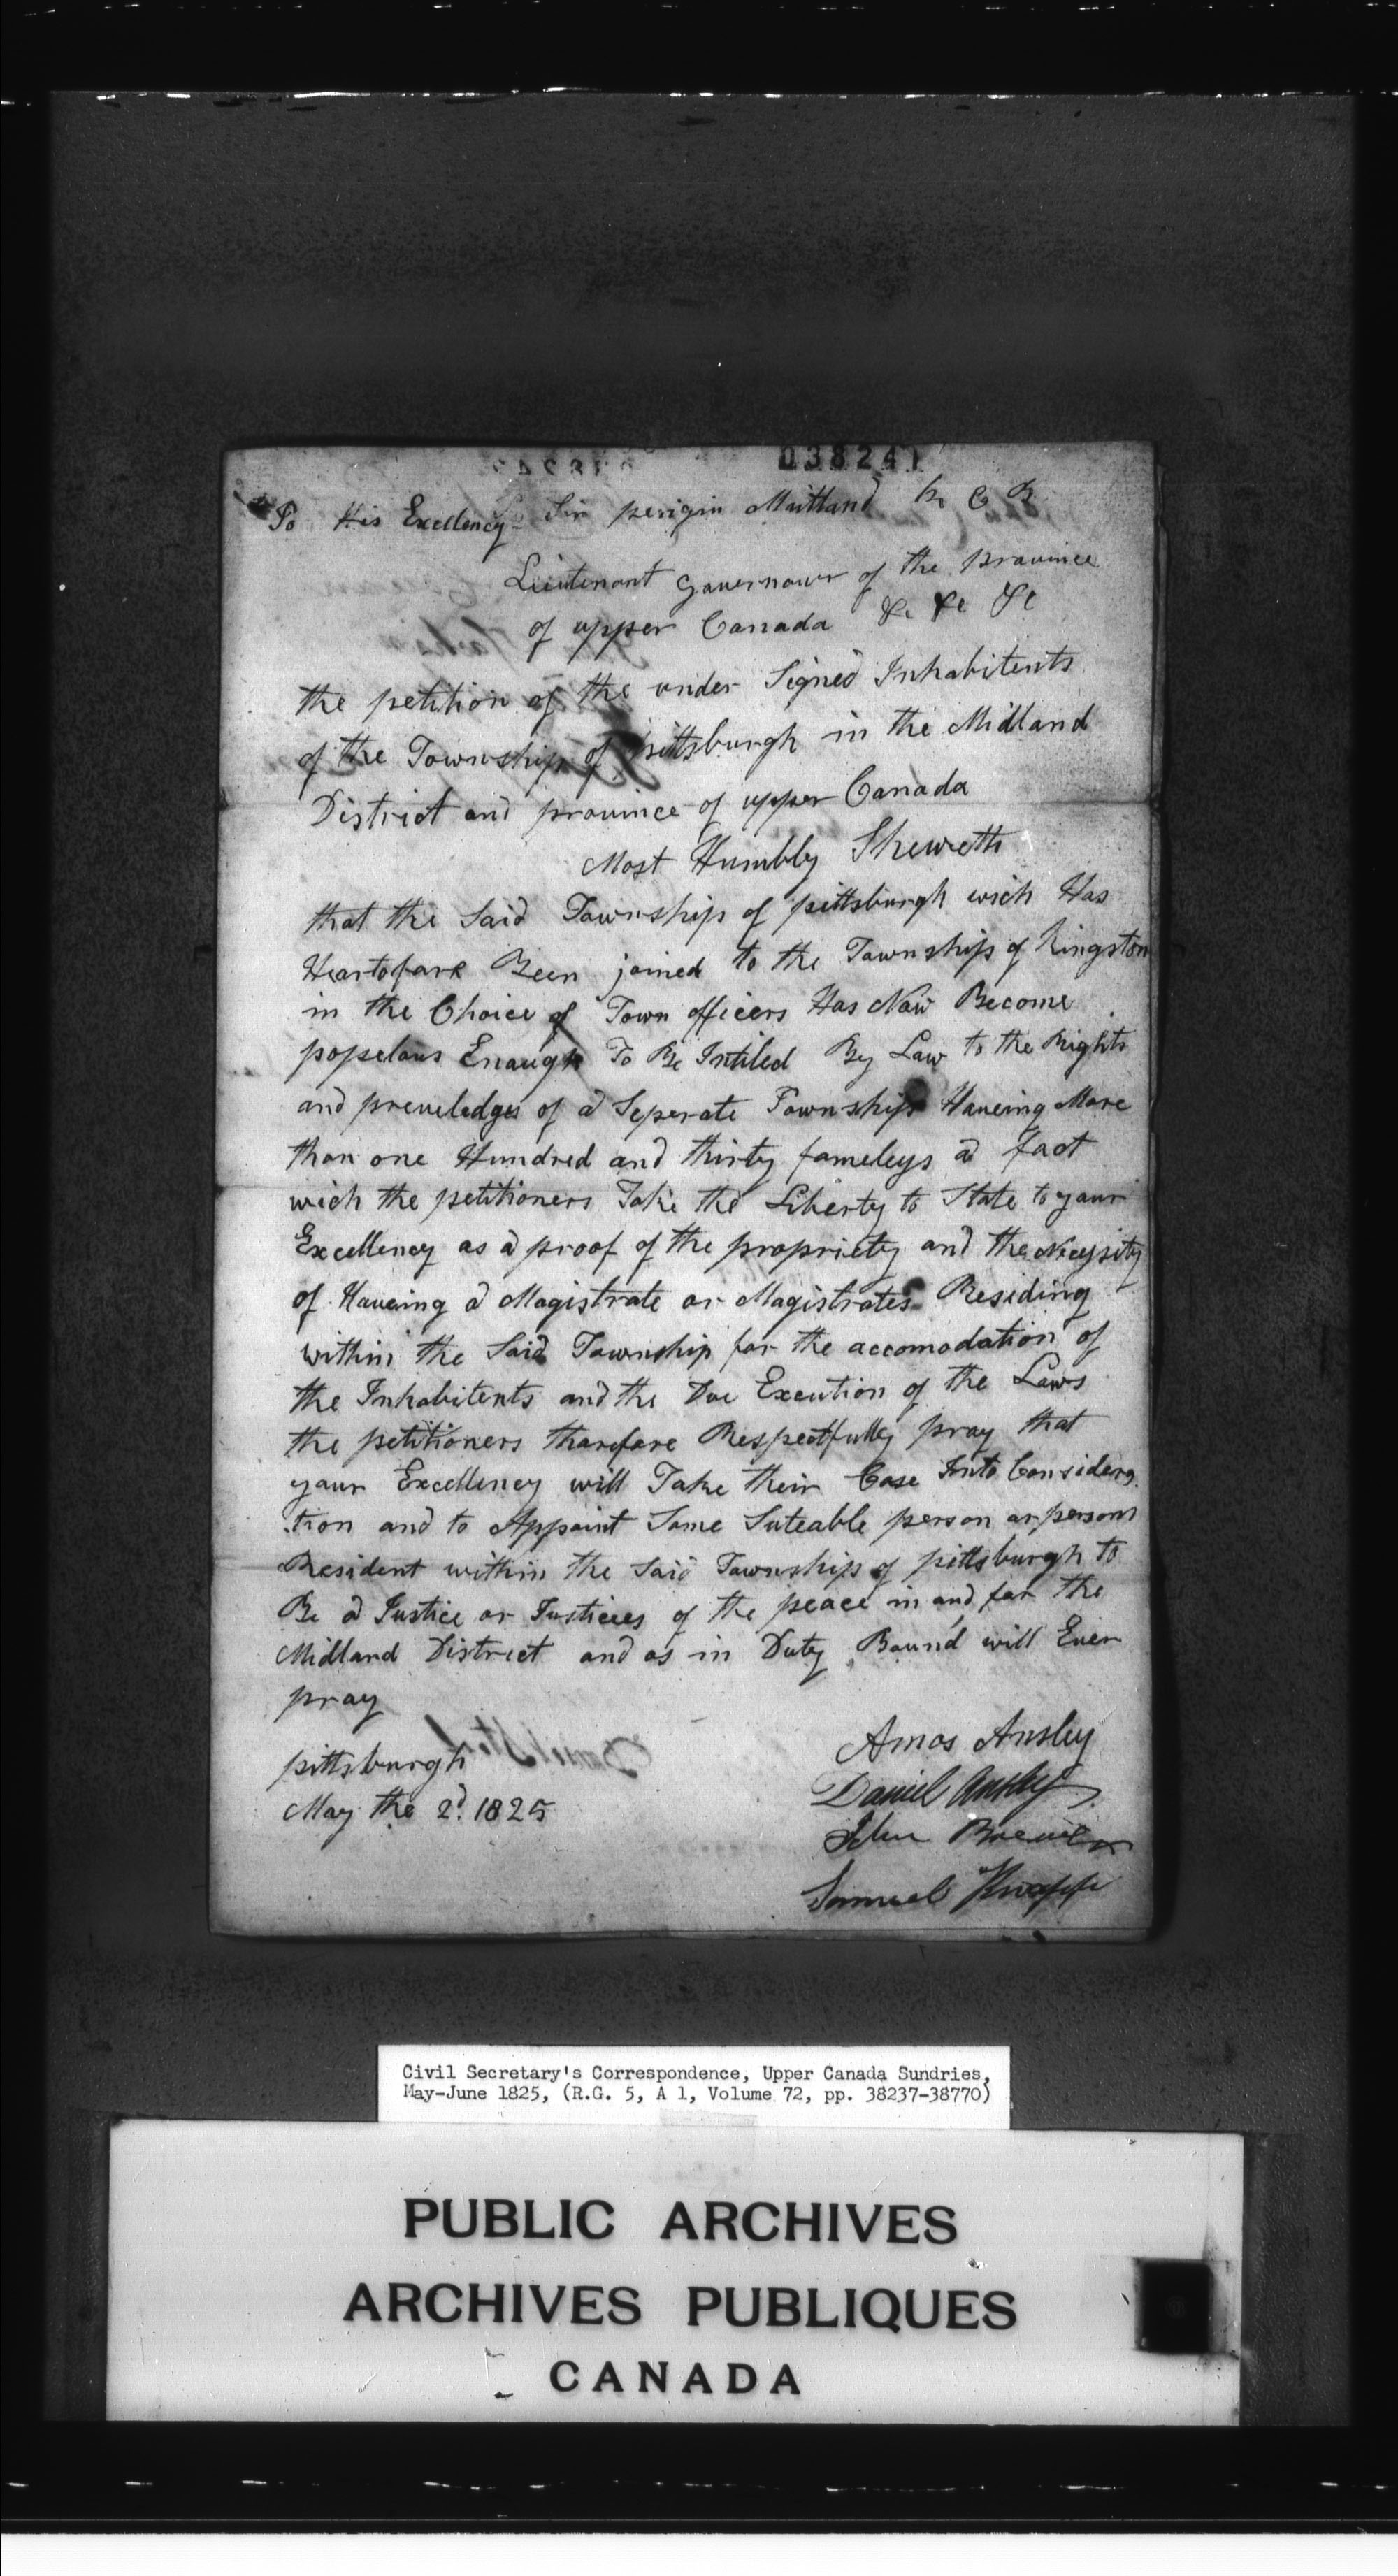 038241
To His Excellency Sir perigin Maitland K C B
Lieutenant Governour of the province
of upper Canada &c &c &c
the petition of the under Signed Inhabitents
of the Township of pittsburgh in the Midland
District and province of upper Canada
Most Humbly Sheweth
that the Said Township of pittsburgh wich Has
Heartofare Been joined to the Township of Kingston
in the Choice of Town officers Has Now Become
popelous Enough To Be Intiled By Law to the Rights
and preveledges of a Seperate Township Haveing More
than one Hundred and thirty fameleys a fact
wich the petitioners Take the Liberty to State to your
Excellency as a proof of the propriety and the Necysity
of Haveing a Magistrate or Magistrates Residing
within the Said Township for the accomodation of
the Inhabitents and the Due Excution of the Laws
the petitioners tharefore Respectfully pray that
your Excellency will Take their Case Into Considera
tion and to Appoint Some Suteable person or persons
Resident within the Said Township of pittsburgh to
Be a Justice or Justices of the peace in and for the
Midland District and as in Duty Bound will Ever
pray
pittsburgh
May the 2d. 1825
Amos Ansley
Daniel Ansley
John Brewer
Samuel Knapp
Civil Secretary's Correspondence, Upper Canada Sundries,
May-June 1825, (R.G. 5, A 1, Volume 72, pp. 38237-38770)
PUBLIC ARCHIVES
ARCHIVES PUBLIQUES
CANADA